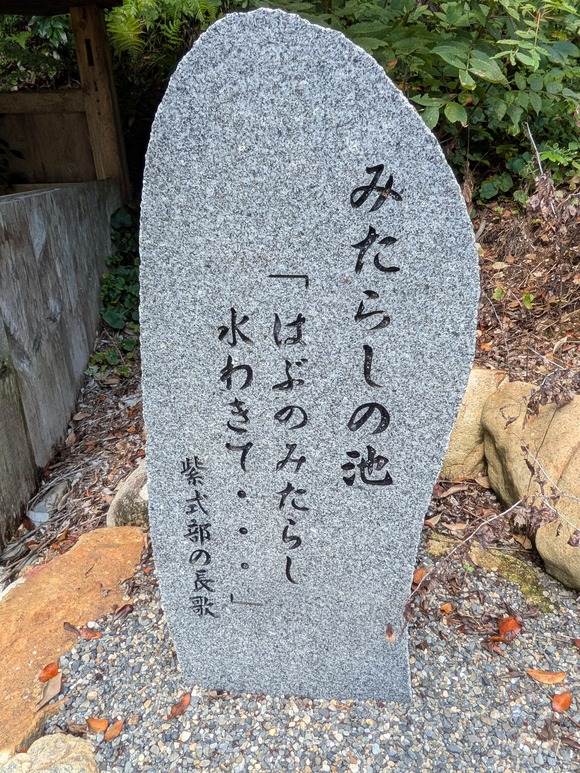 みたらしの池
「はぶのみたらし
水わきて・・・」
紫式部の長歌